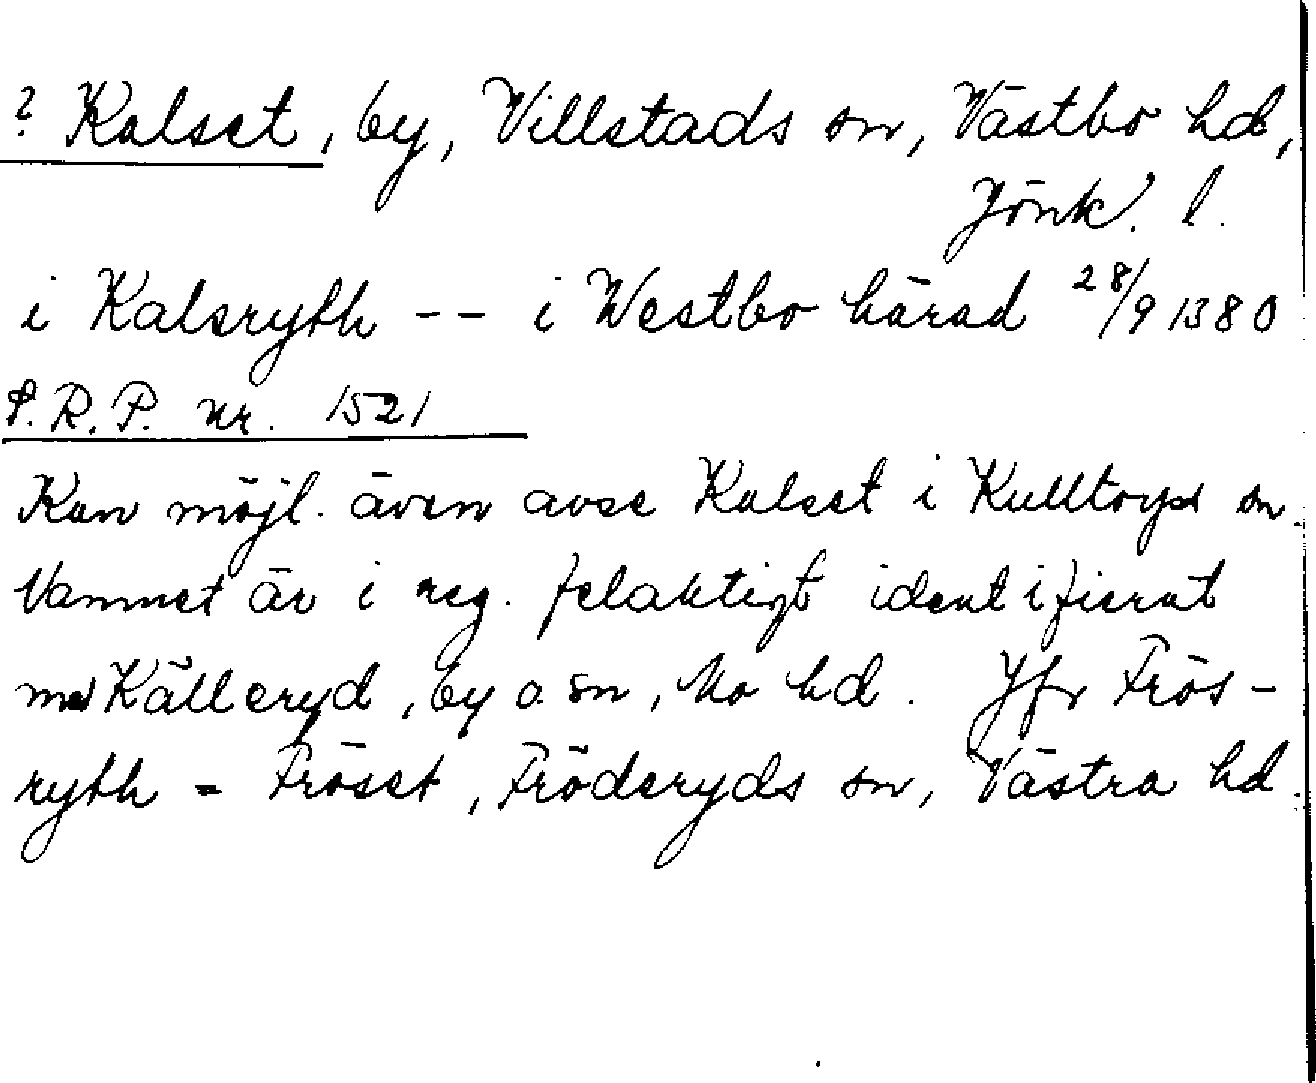 ? Kalset, by, Villstads sn, Västbo hd,
Jönk. l.
i Kalsryth -- i Westbo härad 28/9 1380
S.R.P. nr. 1521
Kan möjl. även avse Kalset i Kulltorps sn
Namnet är i reg. felaktigt identifierat
med Källeryd, by o sn, Mo hd. Jfr Frös-
ryth = Fröset, Fröderyds sn, Västra hd.